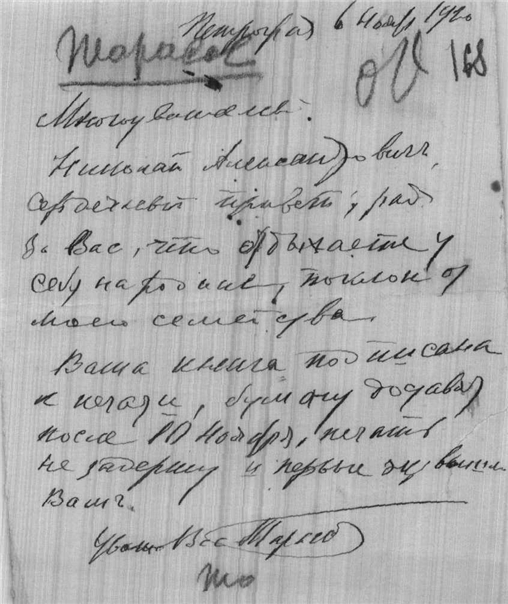 Петроград 6 Ноябр 1920
Тарасов
168
Многоуважаемый
Николай Александрович,
сердечный привет, рад
за Вас, что отдыхаете у
себя на родине, поклон от
моего семейства.
Ваша книга подписана
к печати, бумагу додавал
после 10 Ноября, печать
не задержу и первые экз вышлю
Вам.
Уваж. Вас Тарасов
То